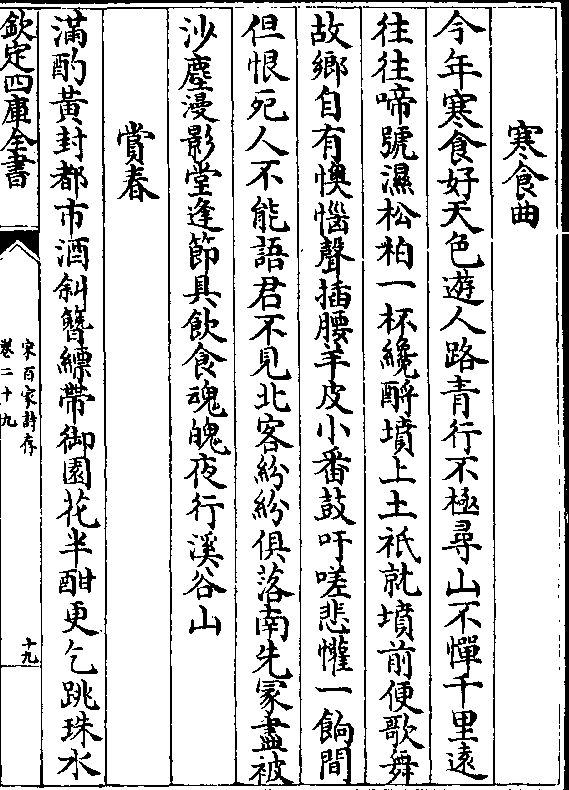 寒食曲
今年寒食好天色遊人路青行不極尋山不憚千里遠
往往啼號濕松柏一杯纔酹墳上土祇就墳前便歌舞
故鄉自有懊惱聲插腰羊皮小番鼓吁嗟悲懽一餉間
但恨死人不能語君不見北客紛紛俱落南先冢盡被
沙塵漫影堂逢節具飲食魂魄夜行溪谷山
賞春
滿酌黃封都市酒斜簪縹帶御園花半酣更乞跳珠水
欽定四庫全書
宋百家詩存
卷二十九
十九